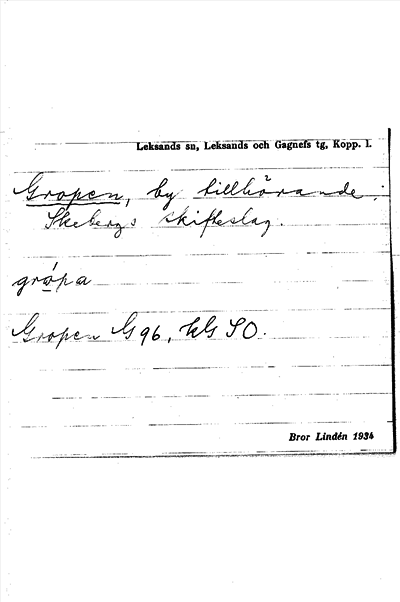 Leksands sn, Leksands och Gagnefs tg, Kopp. l.
Gropen, by tillhörande
Skebergs skifteslag.
gropa
Gropen G 96, kG SO.
Bror Lindén 1934